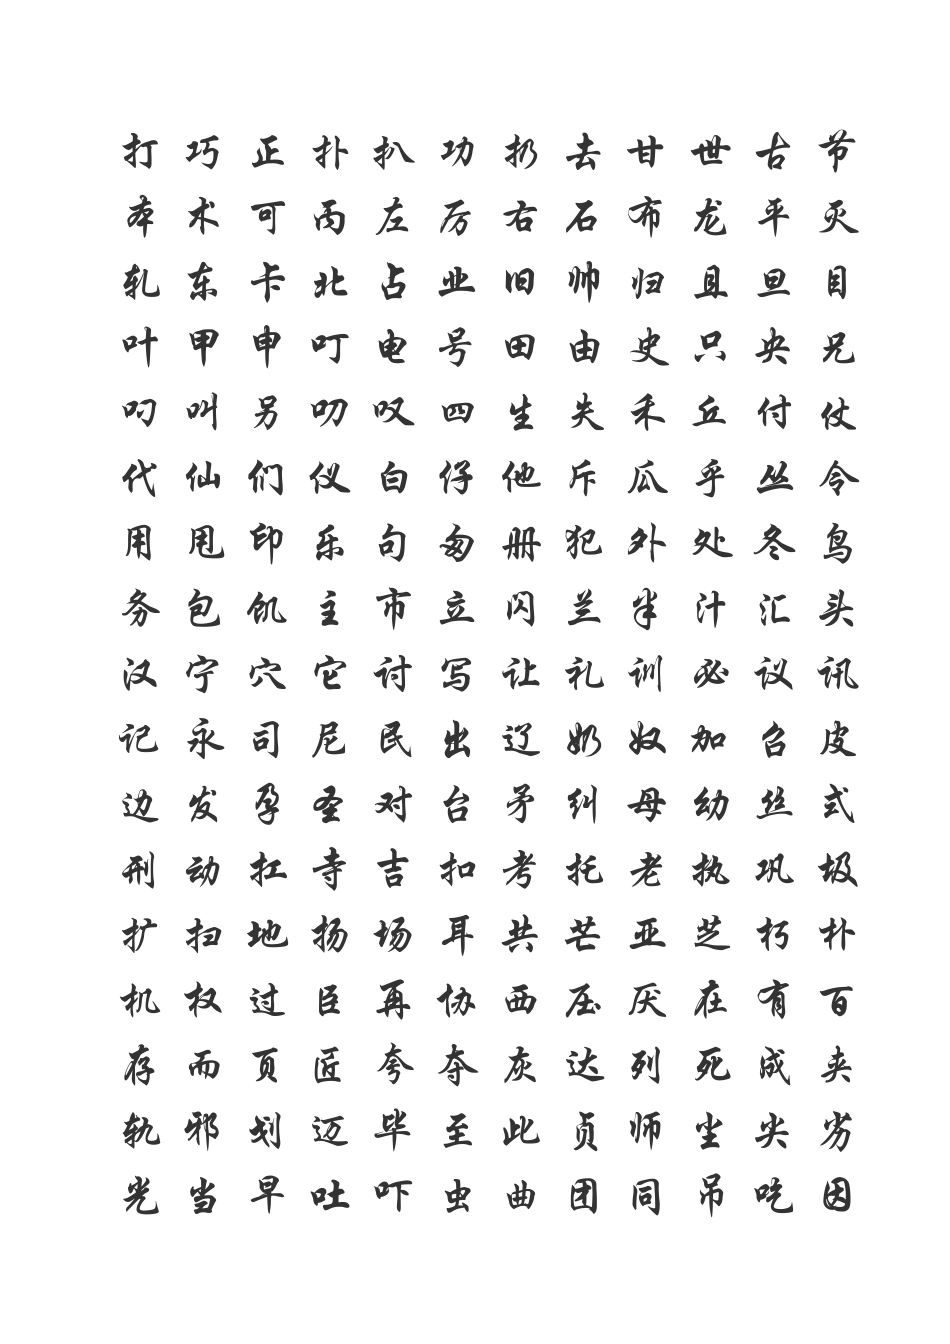 打 巧 正 扑 扒 功 扔 去 甘 世 古 节
本 术 可 丙 左 厉 右 石 布 龙 平 灭
轧 东 卡 北 占 业 旧 帅 归 且 旦 目
叶 甲 申 叮 电 号 田 由 史 只 央 兄
叼 叫 另 叨 叹 四 生 失 禾 丘 付 仗
代 仙 们 仪 白 仔 他 斥 瓜 乎 丛 令
用 甩 印 乐 句 匆 册 犯 外 处 冬 鸟
务 包 饥 主 市 立 闪 兰 半 汁 汇 头
汉 宁 穴 它 讨 写 让 礼 训 必 议 讯
记 永 司 尼 民 出 辽 奶 奴 加 召 皮
边 发 孕 圣 对 台 矛 纠 母 幼 丝 式
刑 动 扛 寺 吉 扣 考 托 老 执 巩 圾
扩 扫 地 扬 场 耳 共 芒 亚 芝 朽 朴
机 权 过 臣 再 协 西 压 厌 在 有 百
存 而 页 匠 夸 夺 灰 达 列 死 成 夹
轨 邪 划 迈 毕 至 此 贞 师 尘 尖 劣
光 当 早 吐 吓 虫 曲 团 同 吊 吃 因